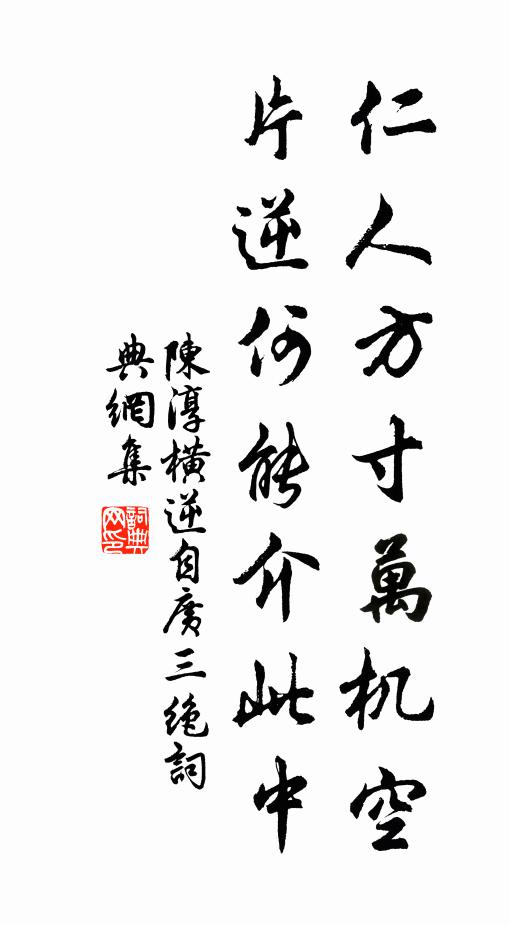 仁人方寸萬机空
片逆何能介此中
陳淳橫逆自廣三絶詞
典網集
詞典网印